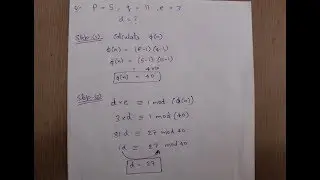 P = 5, q = 11, e = 3
d = ?
Step-(1) Calculate φ(n)
φ(n) = (P-1)(q-1)
φ(n) = (5-1)(11-1)
φ(n) = 40
Step-(2)
d×e ≡ 1 mod (φ(n))
3×d ≡ 1 mod (40)
≡ 27 mod 40
1d ≡ 27 mod 40
d = 27